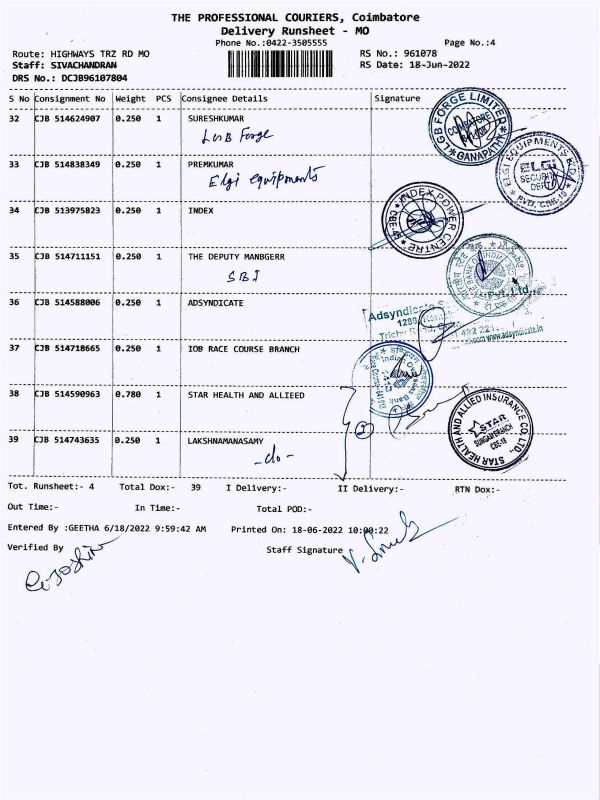 THE PROFESSIONAL COURIERS, Coimbatore
Delivery Runsheet - MO
Phone No.:0422-3505555
Page No.:4
Route: HIGHWAYS TRZ RD MO
RS No.: 961078
Staff: SIVACHANDRAN
RS Date: 18-Jun-2022
DRS No.: DCJB96107804
S No Consignment No Weight PCS Consignee Details Signature
32 CJB 514624907 0.250 1 SURESHKUMAR
LGB Forge
LGB FORGE LIMITED
COIMBATORE
GANAPATHY
33 CJB 514838349 0.250 1 PREMKUMAR
Elgi equipments
ELGI EQUIPMENTS
ELGI
SECURITY
DEPT
34 CJB 513975823 0.250 1 INDEX
INDEX POWER CENTRE
35 CJB 514711151 0.250 1 THE DEPUTY MANBGERR
SBI
36 CJB 514588006 0.250 1 ADSYNDICATE
Adsyndicate
Pvt. Ltd.
www.adsyndicate.in
37 CJB 514718665 0.250 1 IOB RACE COURSE BRANCH
Indian Overseas Bank
38 CJB 514590963 0.780 1 STAR HEALTH AND ALLIEED
STAR HEALTH AND ALLIED INSURANCE CO. LTD.
STAR
39 CJB 514743635 0.250 1 LAKSHNAMANASAMY
-do-
Tot. Runsheet:- 4 Total Dox:- 39 I Delivery:- II Delivery:- RTN Dox:-
Out Time:- In Time:- Total POD:-
Entered By :GEETHA 6/18/2022 9:59:42 AM Printed On: 18-06-2022 10:00:22
Verified By Staff Signature